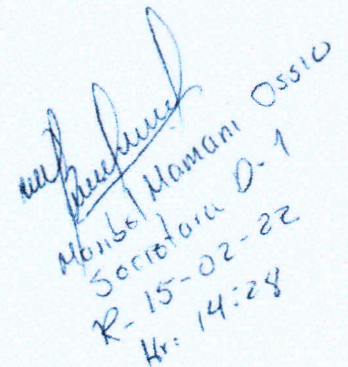 Maribel Mamani Ossio
Secretaria D-1
R- 15-02-22
Hr: 14:28